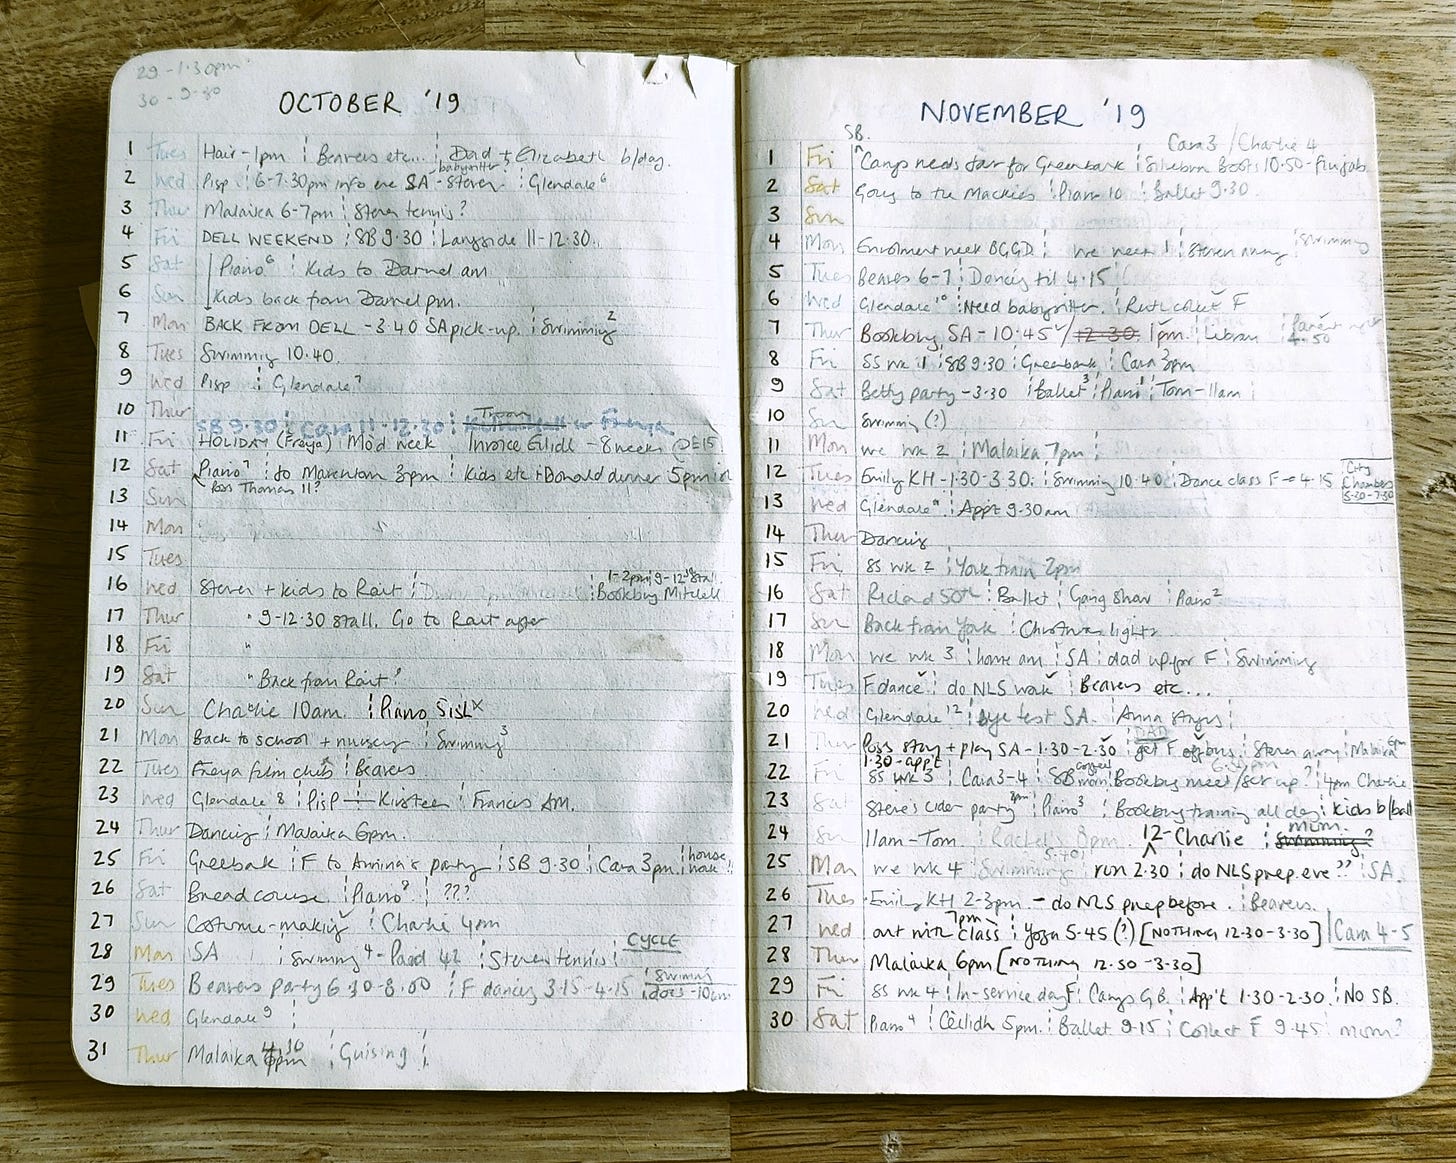 29 - 1.30pm
30 - 9.30
OCTOBER '19
1 Tues Hair - 1pm Beavers etc... Dad + Elizabeth b/day.
babysitter
2 Wed Pisp 6-7.30pm info eve SA - Steven Glendale 6
3 Thur Malaika 6-7pm Steven tennis?
4 Fri DELL WEEKEND SB 9.30 Langside 11-12.30
5 Sat Piano 6 Kids to Darnel am
6 Sun Kids back from Darnel pm.
7 Mon BACK FROM DELL - 3.40 SA pick-up. Swimming 2
8 Tues Swimming 10.40.
9 Wed Pisp Glendale 7
10 Thur
SB 9.30 Cara 11-12.30 Freya
11 Fri HOLIDAY (Freya) Mod week Invoice - 8 weeks
12 Sat Piano 7 to 3pm Kids etc + Donald dinner 5pm
Poss Thomas 11?
13 Sun
14 Mon
15 Tues
1-2pm 9-12.30 stall
16 Wed Steven + kids to Rait Bookbug Mitchell
17 Thur " 9-12.30 stall. Go to Rait after
18 Fri "
19 Sat " Back from Rait?
20 Sun Charlie 10am. Piano X
21 Mon Back to school + nursery Swimming 3
22 Tues Freya film club Beavers
23 Wed Glendale 8 PISP Kirsteen Frances AM.
24 Thur Dancing Malaika 6pm.
25 Fri Greenbank F to Amina's party SB 9.30 Cara 3pm
26 Sat Bread course Piano 8 ???
27 Sun Costume-making Charlie 4pm
CYCLE
28 Mon SA Swimming 4 - Paid 42 Steven tennis
29 Tues Beavers party 6.30-8.00 F dancing 3.15-4.15
30 Wed Glendale 9
31 Thur Malaika 4.30 6pm Guising
NOVEMBER '19
SB. Cara 3 / Charlie 4
1 Fri Camps needs for Greenbank 10.50 -
2 Sat Going to the Mackies Piano 10 Ballet 9.30
3 Sun
4 Mon Enrolment week BGGD we week 1 Steven away Swimming
5 Tues Beavers 6-7 Dancing til 4.15
6 Wed Glendale 10 Need babysitter Ruth collect F
7 Thur Bookbug SA - 10.45 / 12.30 1pm. Library 4.50
8 Fri SS wk 1 SB 9.30 Greenbank Cara 3pm
9 Sat Betty party - 3.30 Ballet 3 Piano 1 Tom - 11am
10 Sun Swimming (?)
11 Mon we wk 2 Malaika 7pm
12 Tues Emily KH - 1.30-3.30 Swimming 10.40 Dance class F - 4.15 City Chambers 5.30-7.30
13 Wed Glendale 11 App't 9.30am
14 Thur Dancing
15 Fri SS wk 2 York train 2pm
16 Sat Richard 50th Ballet Gang Show Piano 2
17 Sun Back from York Christmas lights
18 Mon we wk 3 home am SA dad up for F Swimming
19 Tues F dance do NLS work Beavers etc...
20 Wed Glendale 12 eye test SA. Anna Angus
DAD
21 Thur Poss stay + play SA - 1.30-2.30 get F off bus Steven away Malaika 6pm
1.30 - app't
22 Fri SS wk 3 Cara 3-4 SB Bookbug meet/set up? 4pm Charlie
23 Sat Steve's cider party Piano 3 Bookbug training all day Kids b/ball
24 Sun 11am - Tom Rachel's 8pm 12 - Charlie mum. Swimming?
25 Mon we wk 4 Swimming run 2.30 do NLS prep eve?? SA.
26 Tues Emily KH 2-3pm - do NLS prep before. Beavers.
7pm
27 Wed out with class Yoga 5.45 (?) [NOTHING 12.30-3.30] Cara 4-5
28 Thur Malaika 6pm [NOTHING 12.30-3.30]
29 Fri SS wk 4 In-service day F Camps G.B. App't 1.30-2.30 NO SB.
30 Sat Piano 4 Ceilidh 5pm. Ballet 9.15 Collect F 9.45 mum?